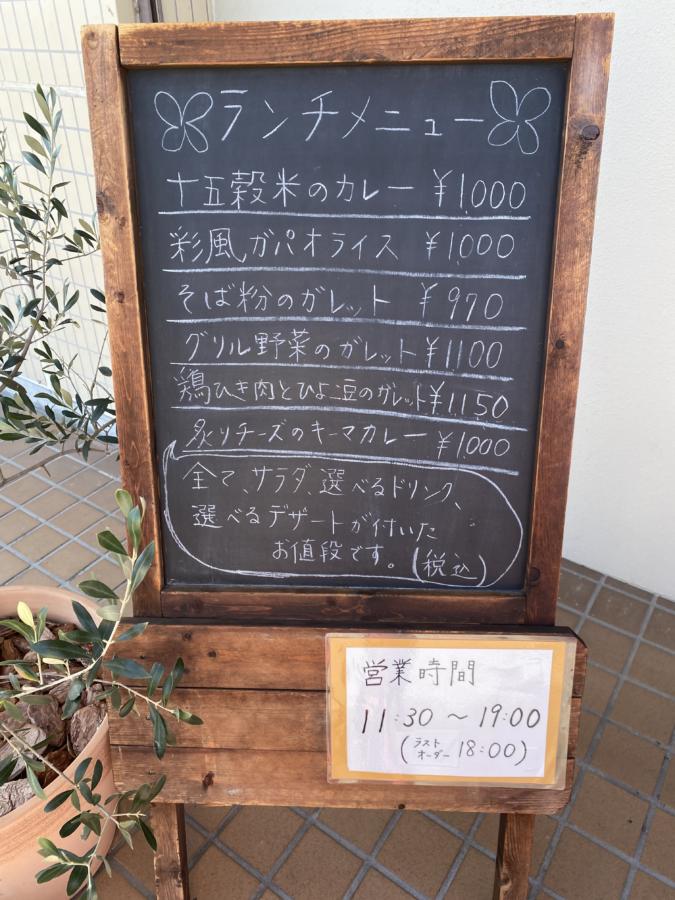 ランチメニュー
十五穀米のカレー ¥1,000
彩風ガパオライス ¥1,000
そば粉のガレット ¥970
グリル野菜のガレット ¥1100
鶏ひき肉とひよこ豆のガレット ¥1,150
炙りチーズのキーマカレー ¥1,000
全て、サラダ、選べるドリンク、
選べるデザートが付いた
お値段です。(税込)
営業時間
11:30 ~ 19:00
(ラストオーダー 18:00)